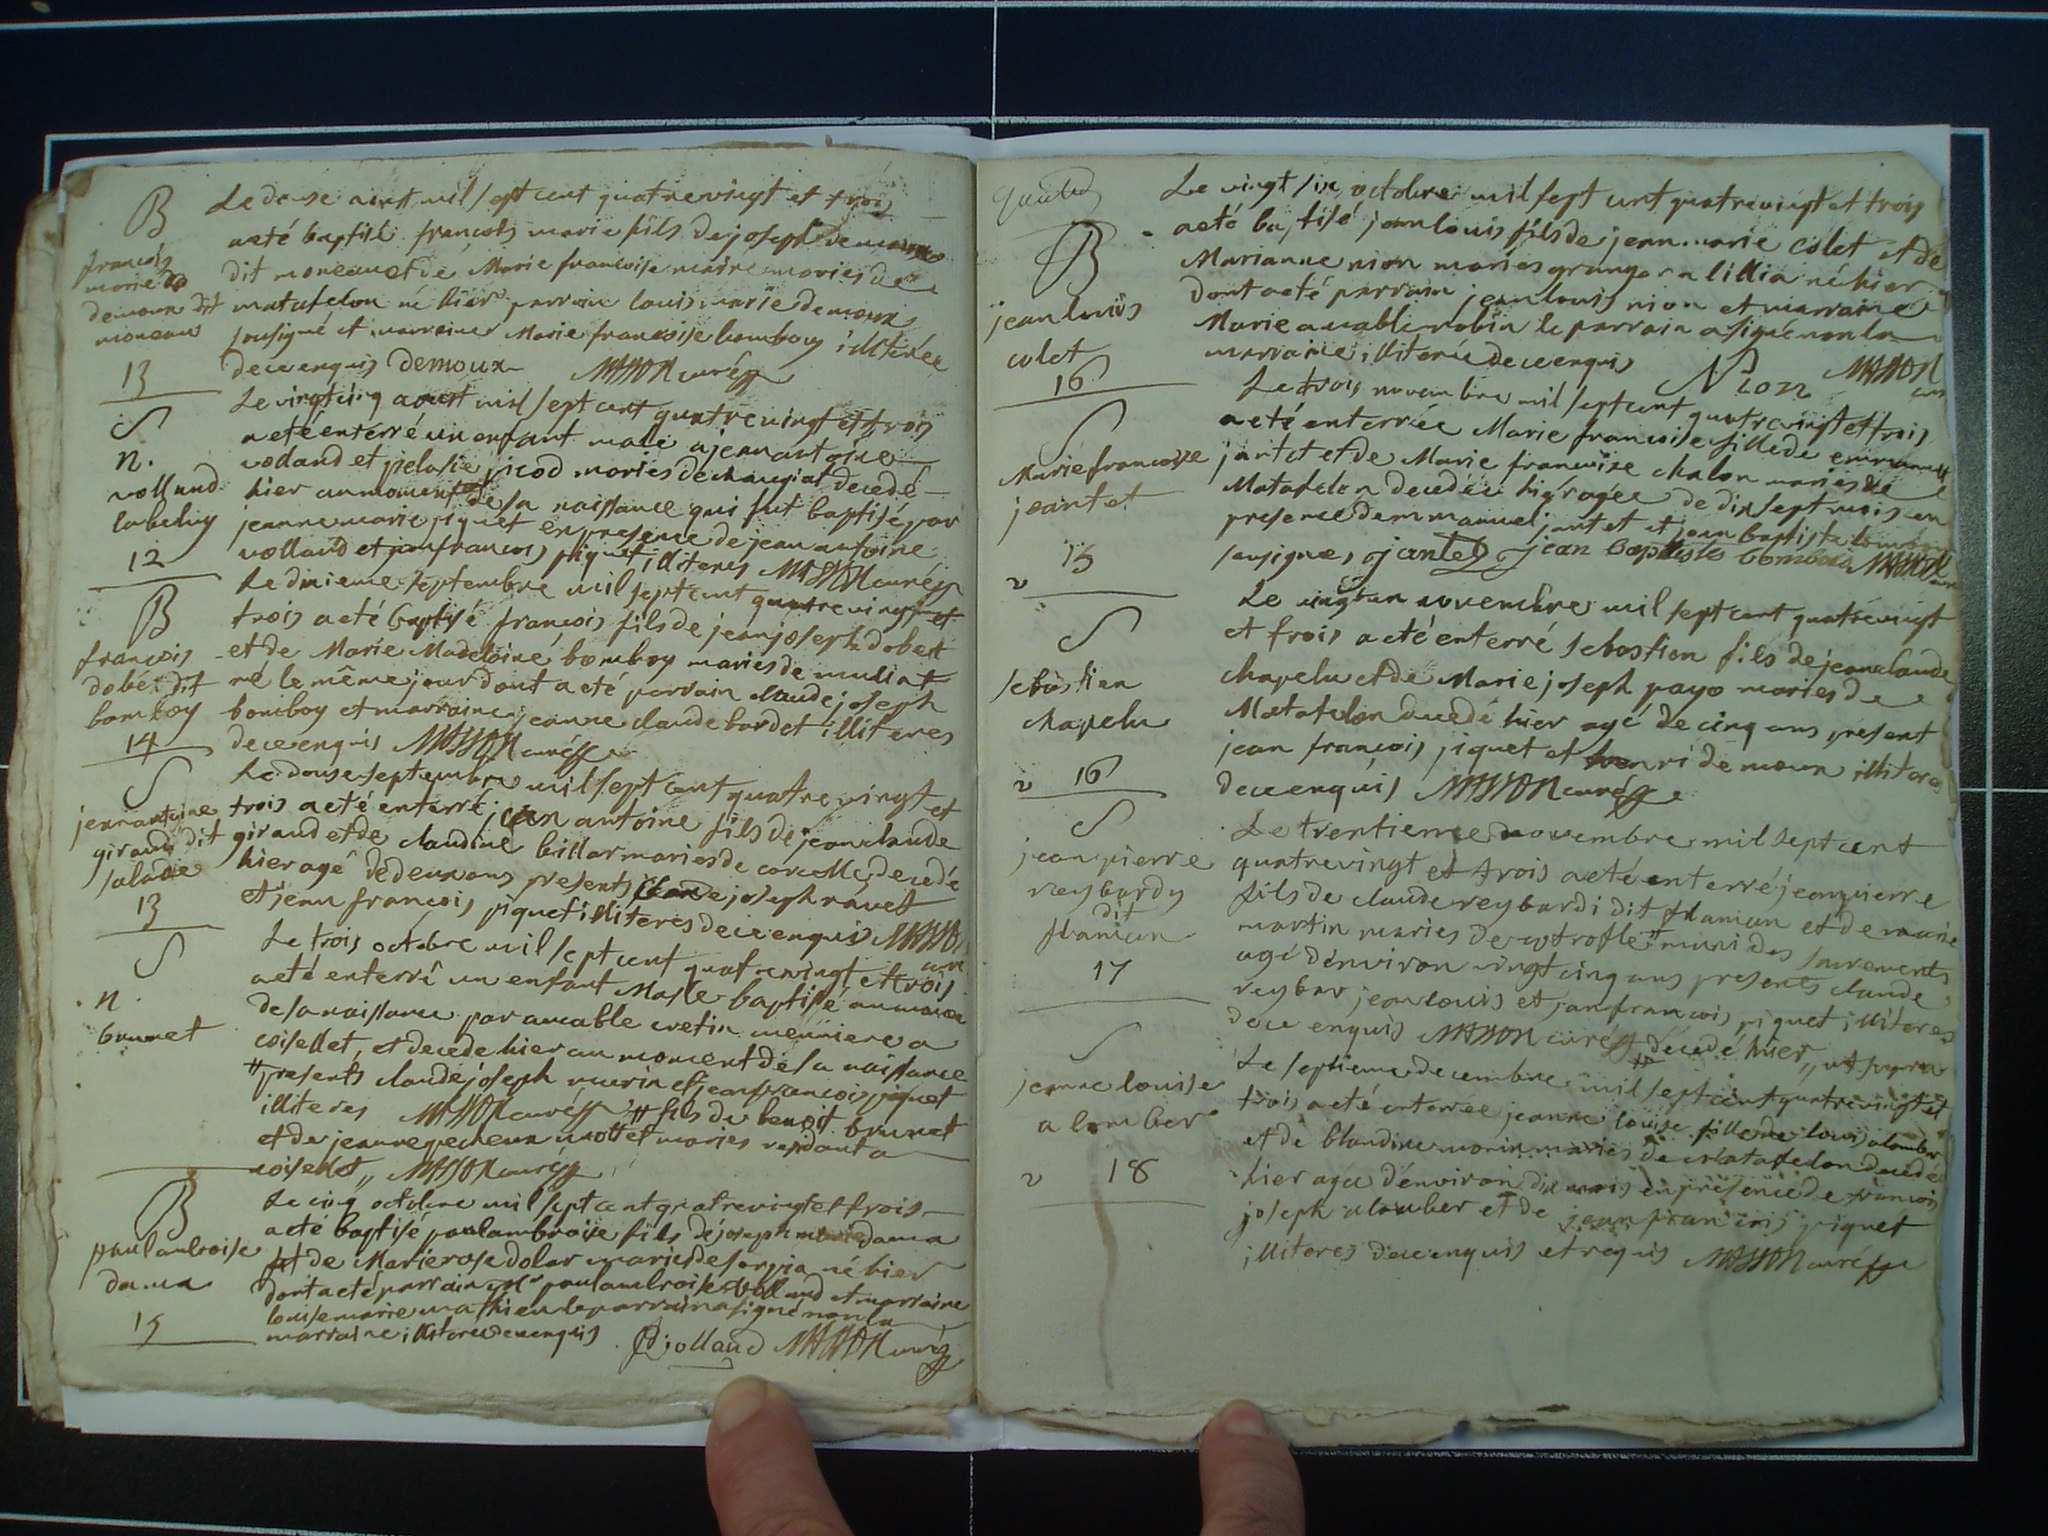 B
françois
marie
demoux dit
moneau
13
Le douse aoust mil sept cent quatrevingt et trois
a eté baptisé françois marie fils de joseph demoux
dit moneau et de Marie francoise maire maries de
matafelon né hier parrain louis marie demoux
sousigné et marraine Marie francoise bomboy illiterée
de ce enquis demoux MASSON curé
S
n.
volland
labeluy
12
Le vingtcinq aoust mil sept cent quatrevingt et trois
a eté enterré un enfant male a jean antoine
volland et pelasie picod maries de chaugiat decedé
hier au moment de sa naissance qui fut baptisé par
jeanne marie piquet en presence de jean antoine
volland et jean francois piquet illiteres MASSON curé
B
françois
dobet dit
bomboy
14
Le dixieme septembre mil sept cent quatrevingt et
trois a eté baptisé françois fils de jean joseph dobet
et de Marie Madeloine bomboy maries de muliat
né le même jour dont a eté parrain claude joseph
bomboy et marraine jeanne claude bordet illiteres
de ce enquis MASSON curé
S
jean antoine
giraud dit
salade
13
Le douse septembre mil sept cent quatrevingt et
trois a eté enterré jean antoine fils de jean claude
giraud et de claudine billar maries de corcelle decedé
hier agé de deux ans presents claude joseph ravet
et jean françois piquet illiteres de ce enquis MASSON
curé
S
n.
brunet
Le trois octobre mil sept cent quatrevingt et trois
a eté enterré un enfant Masle baptisé au moment
de sa naissance par aimable cretin meuniere a
coisellet, et decede hier au moment de sa naissance
presents claude joseph nuerin et jean francois piquet
illiteres MASSON curé # fils de benoit brunet
et de jeanne pecheux mottet maries residant a
coisellet,, MASSON curé
B
paul ambroise
dama
15
Le cinq octobre mil sept cent quatrevingt et trois
a eté baptisé paul ambroise fils de joseph marie dama
et de Marie rose dolar maries de sorpia né hier
dont a eté parrain Sr paul ambroise volland et marraine
louise marie mathieu le parrain a signé non la
marraine illiteree de ce enquis Volland MASSON curé
B
jean louis
colet
16
Le vingt six octobre mil sept cent quatrevingt et trois
a eté baptisé jean louis fils de jean marie colet et de
Marianne nion maries granger a lillia né hier
dont a eté parrain jean louis nion et marraine
Marie amable robin le parrain a signé non la
marraine illiterée de ce enquis Nion MASSON
curé
S
Marie francoise
jeantet
15
Le trois novembre mil sept cent quatrevingt et trois
a eté enterrée Marie francoise fille de emmanuel
jantet et de Marie francoise chalon maries de
Matafelon decedée hier agée de dix sept mois en
presence d'emmanuel jantet et jean baptiste bomboy
sousignes jantet jean baptiste bomboi MASSON
S
sebastien
chapelu
16
Le vingt un novembre mil sept cent quatrevingt
et trois a eté enterré sebastien fils de jean claude
chapelu et de Marie joseph payo maries de
Matafelon decedé hier agé de cinq ans present
jean françois piquet et henri demoux illiteres
de ce enquis MASSON curé
S
jean pierre
reybardy
dit
flaman
17
Le trentieme novembre mil sept cent
quatrevingt et trois a eté enterré jean pierre
fils de claude reybardi dit flaman et de marie
martin maries de # muni des sacrements
agé d'environ vingt cinq ans presents claude
reybar jean louis et jean francois piquet illiteres
de ce enquis MASSON curé # decedé hier,, ut supra
S
jeanne louise
alomber
18
Le septieme decembre mil sept cent quatrevingt et
trois a eté enterrée jeanne louise fille de louis alomber
et de blandine morin maries de Matafelon decedée
hier agée d'environ dix mois en presence de francois
joseph alomber et de jean francois piquet
illiteres de ce enquis et requis MASSON curé